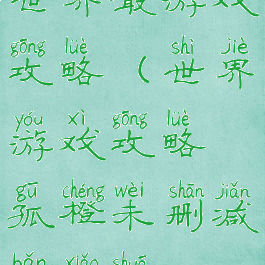 世界最游戏
gōng lüè shì jiè
攻略(世界
yóu xì gōng lüè
游戏攻略
gū chéng wèi shān jiǎn
孤橙未删减
bǎn xiǎo shuō